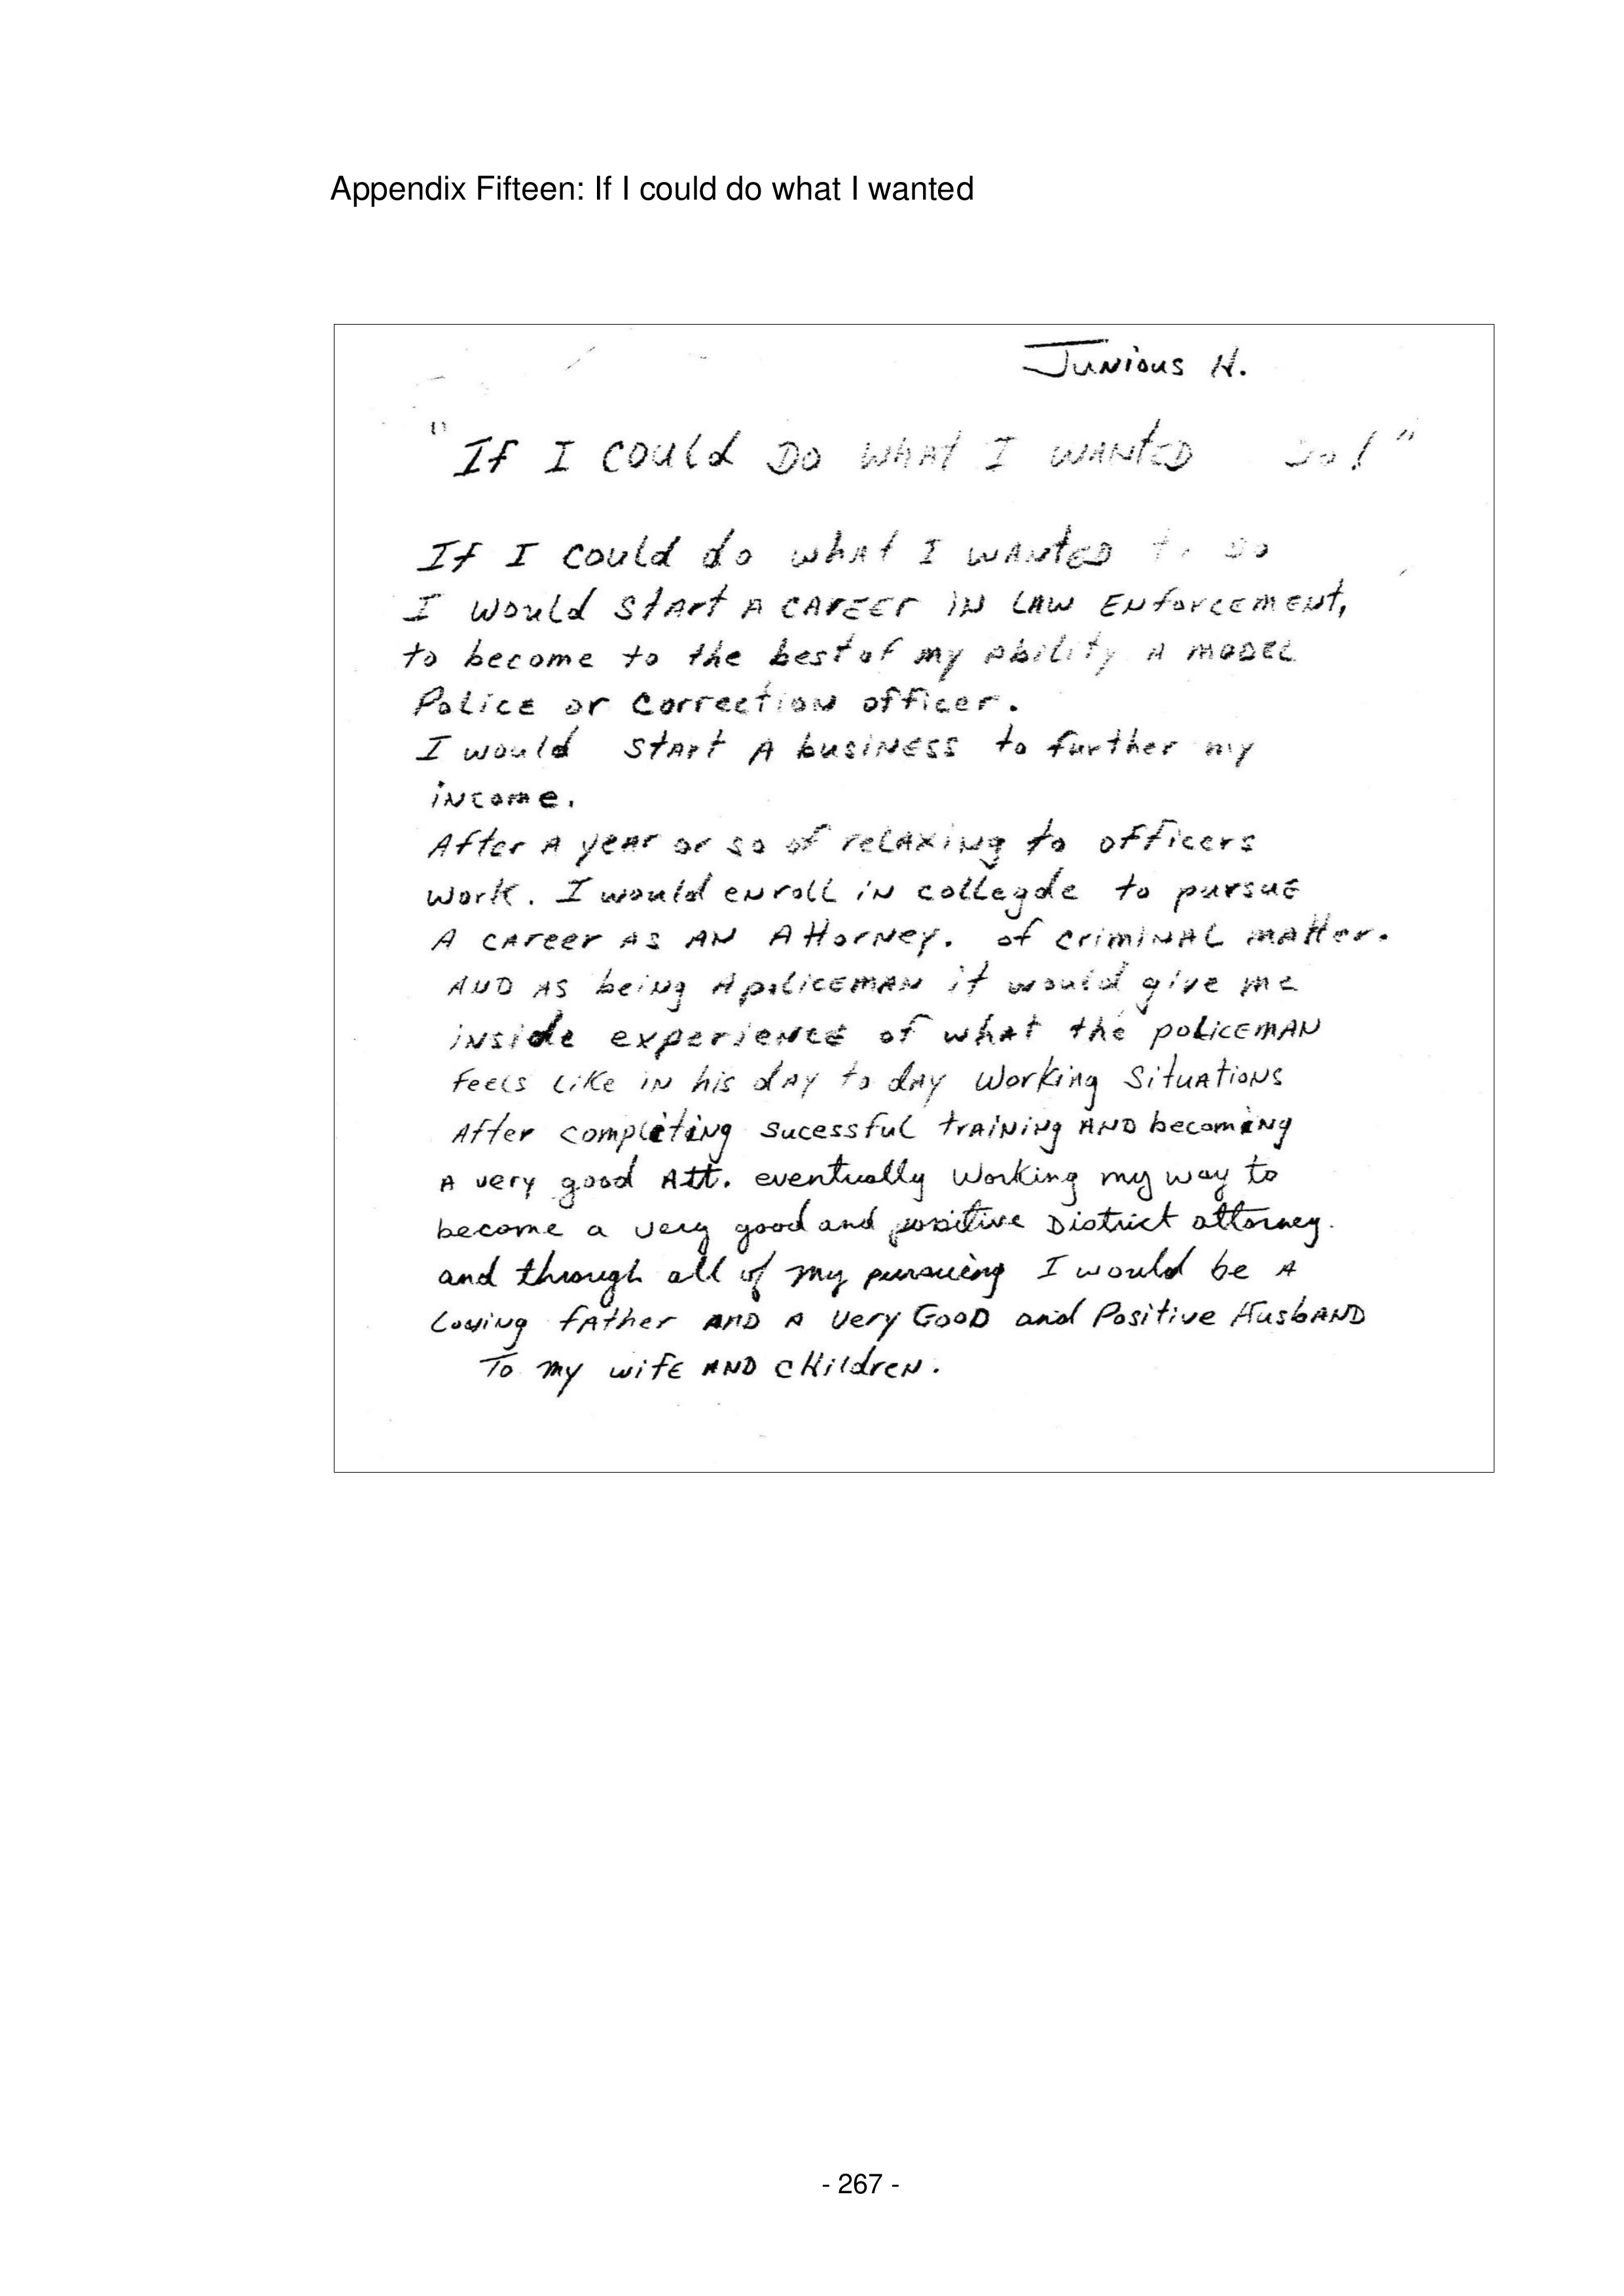 Appendix Fifteen: If I could do what I wanted
Junious H.
"If I could Do what I wanted do!"
If I could do what I wanted to do
I would start a career in law enforcement,
to become to the best of my ability a model
Police or correction officer.
I would start a business to further my
income.
After a year or so of relaxing to officers
work. I would enroll in collegde to pursue
a career as an Attorney. of criminal matter.
And as being a policeman it would give me
inside experience of what the policeman
feels like in his day to day working situations
After completing sucessful training and becoming
a very good Att. eventually working my way to
become a very good and positive District attorney.
and through all of my pursueing I would be a
Loving father and a very Good and Positive Husband
To my wife and children.
- 267 -